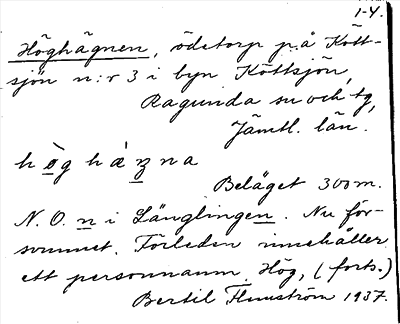 1-4.
Höghägnen, ödetorp på Kött-
sjön n:r 3 i byn Köttsjön,
Ragunda sn och tg,
Jämtl. län.
hò̱g hàṉna
Beläget 300 m.
N. O. n i Länglingen. Nu för-
svunnet. Förleden innehåller
ett personnamn Hög, (forts.)
Bertil Flemström 1937.